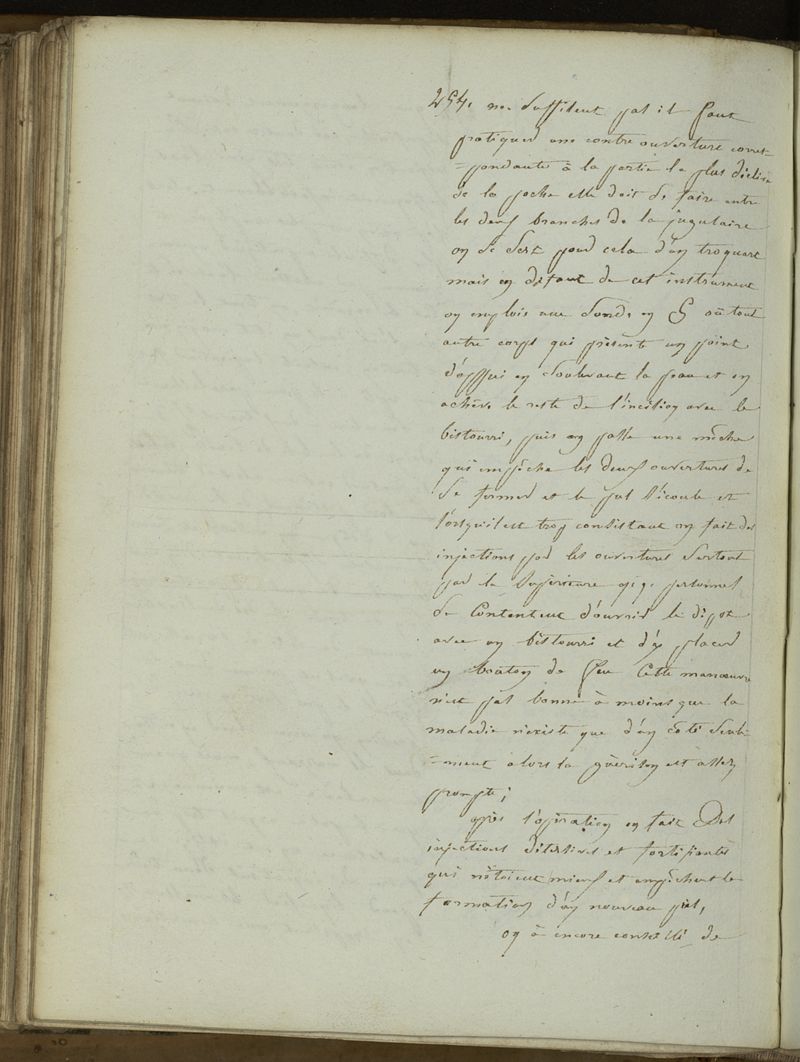 254. ne suffisent pas il faut
pratiquer une contre ouverture corres=
=pondante à la partie la plus déclive
de la poche elle doit se faire entre
les deux branches de la jugulaire
on se sert pour cela d'un troquart
mais en défaut de cet instrument
on emplois une sonde en S où tout
autre corps qui présente un point
d'appui en soulevant la peau et on
achève le reste de l'incision avec le
bistourri, puis on passe une mèche
qui empêche les deux ouvertures de
se fermer et le pus s'écoule et
lorsquil est trop consistant on fait des
injections par les ouvertures surtout
par la supérieure personnes
se contentent d'ouvrir le dépot
avec un bistourri et d'y placer
un bouton de feu Cette manœuvre
n'est pas bonne à moins que la
maladie n'existe que d'un côté seule=
=ment alors la guérison est assez
prompte;
après l'opération on fait des
injections détersives et fortifiantes
qui nétoient mieux et empêchent la
formation d'un nouveau pus,
on à encore conseillé de